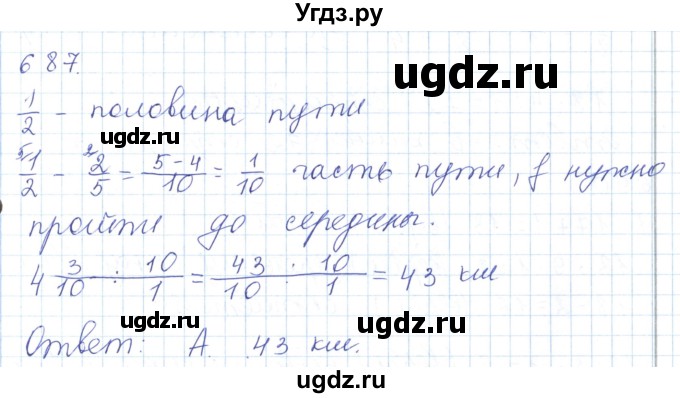 Угдз.ру
687.
1/2 - половина пути
ugdz.ru
ugdz.ru
5\1/2 - 2\2/5 = (5-4)/10 = 1/10 часть пути, f нужно
ugdz.ru
пройти до середины.
4 3/10 : 10/1 = (43 : 10)/(10 : 1) = 43 км
ugdz.ru
ugdz.ru
Ответ: А. 43 км.
ugdz.ru
ugdz.ru